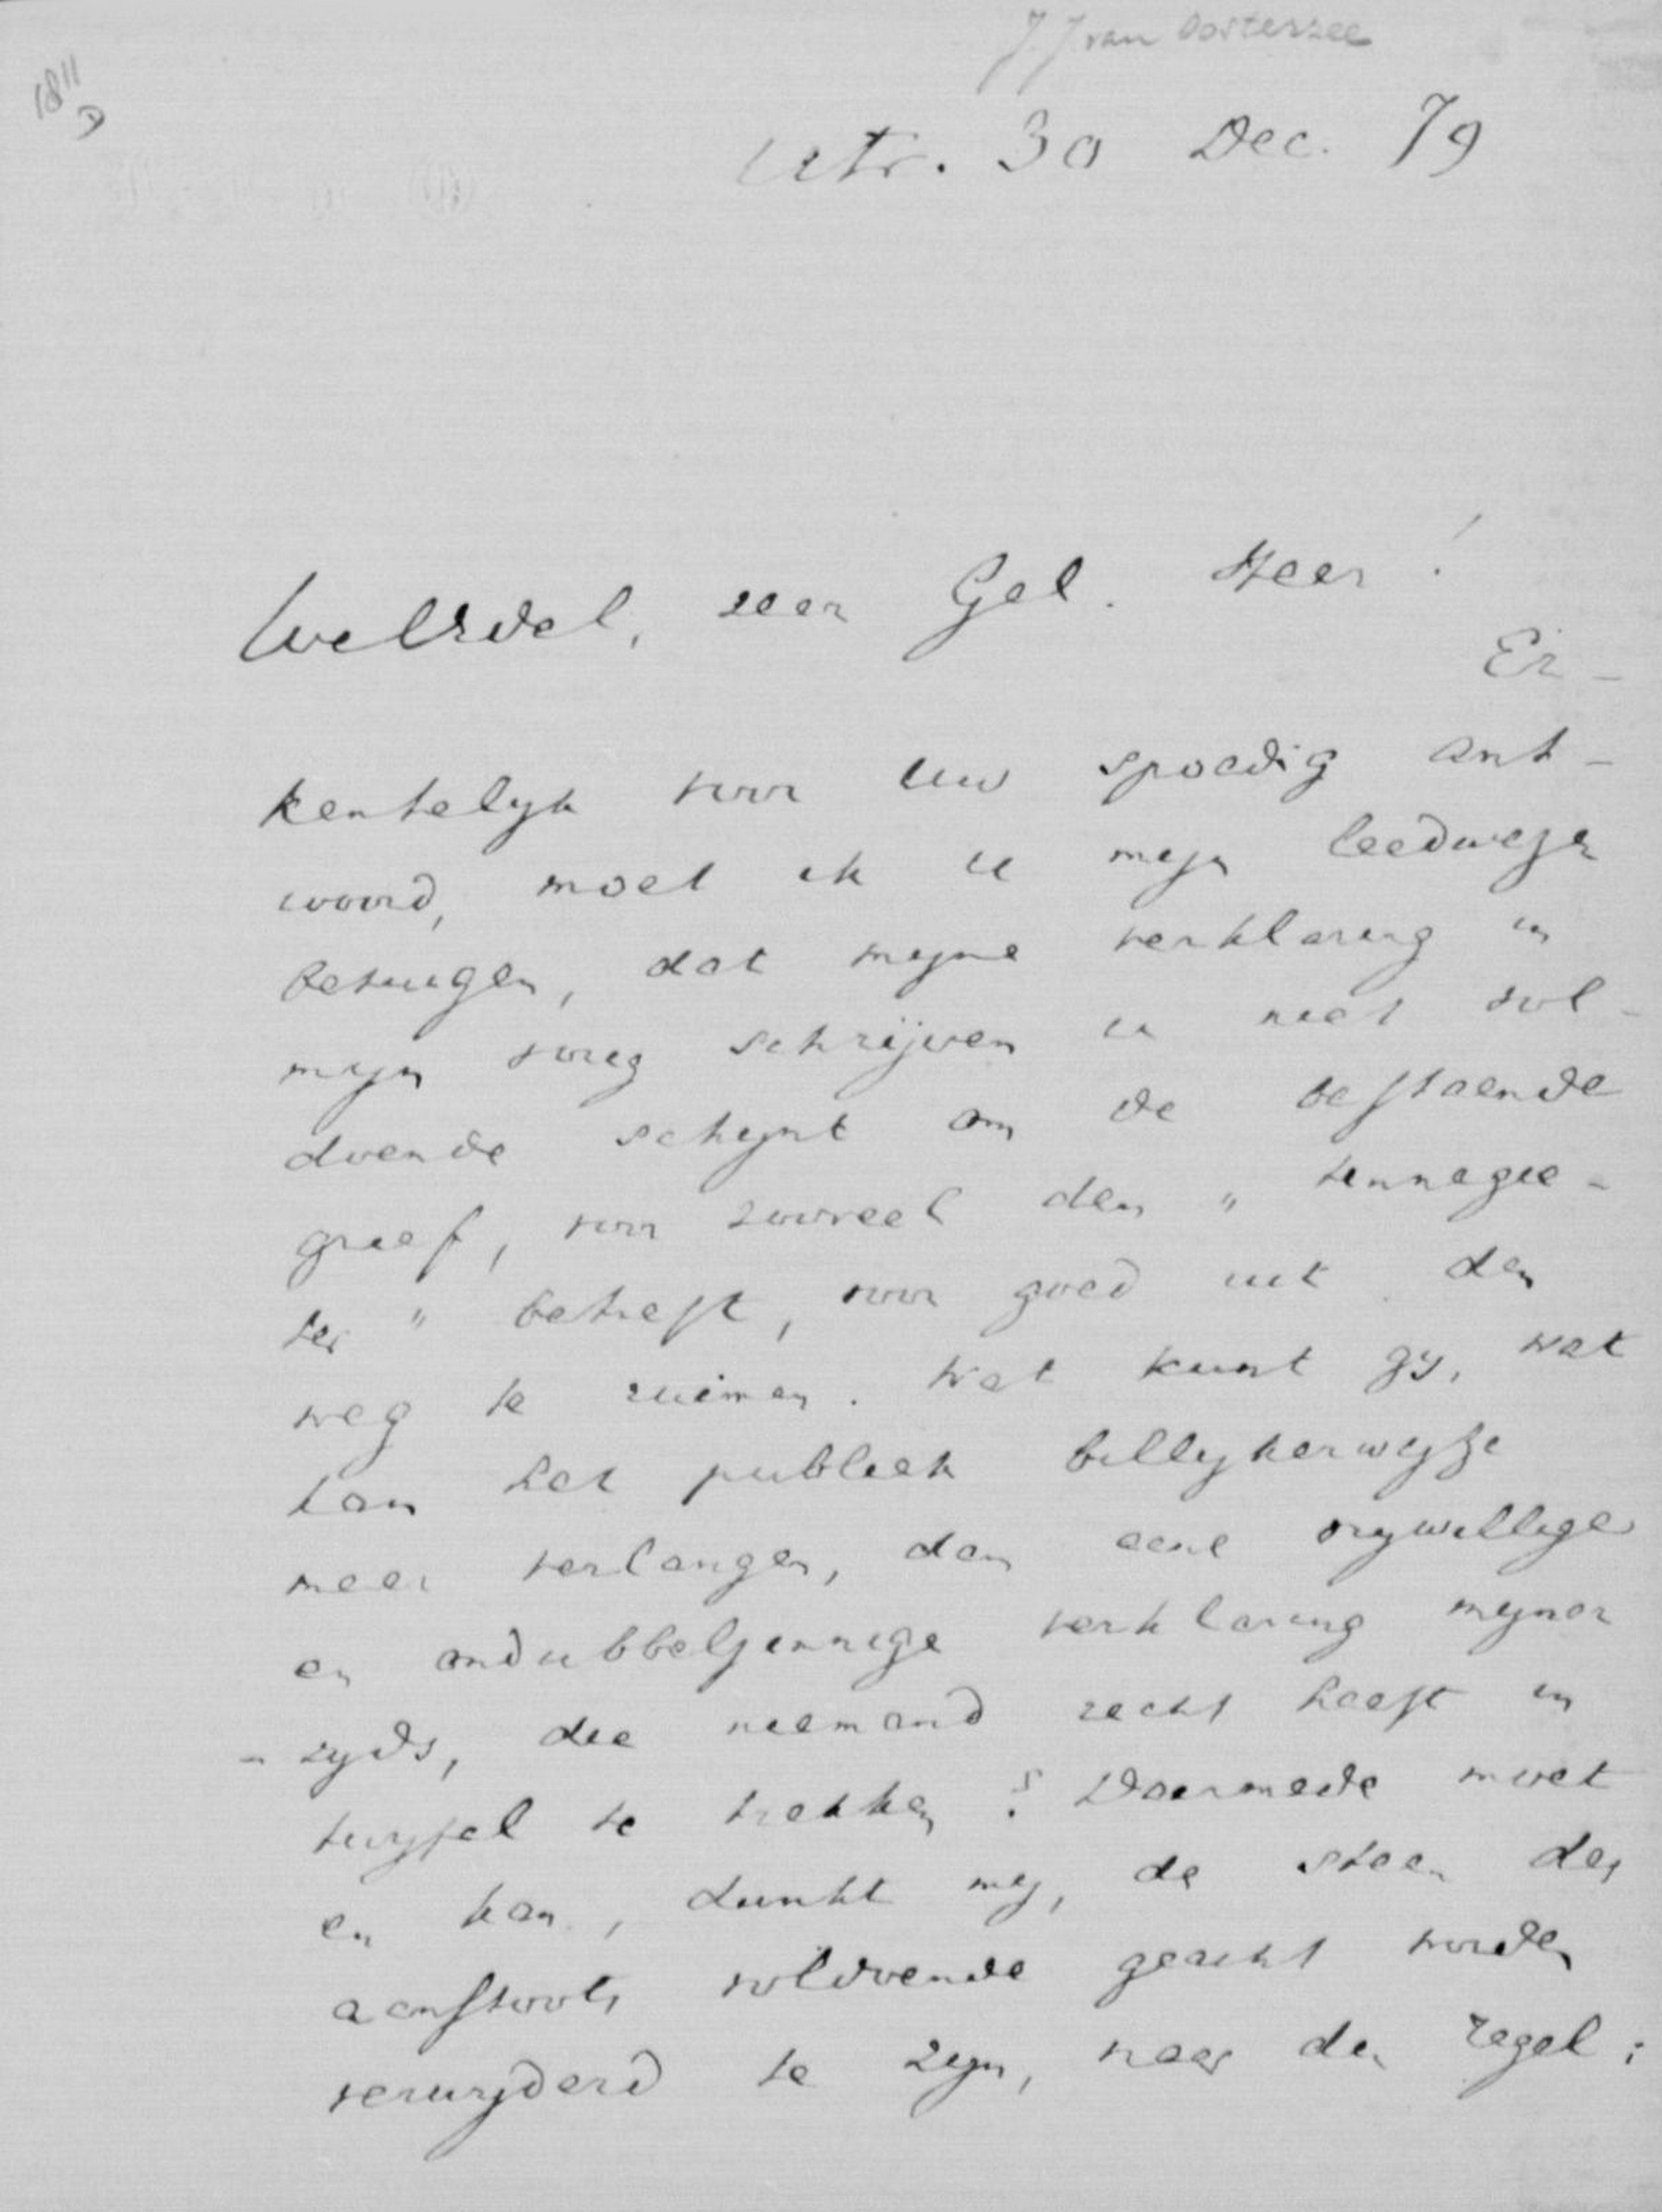 J J van Oosterzee
1811
D
Utr. 30 Dec. 79
WelEdel, zeer Gel. Heer!
Er-
kentelyk voor Uw spoedig ant-
woord, moet ik U myn leedwezen
betuigen, dat myne verklaring in
myn vorig schrijven U niet vol-
doende schynt om de bestaende
grief, voor zooveel den "
ter" betreft, voor goed uit den
weg te ruimen. Wat kunt gy, wat
kan het publiek billykerwyze
meer verlangen, dan eene vrywillige
en ondubbelzinnige verklaring myner
- zyds, die niemand recht heeft in
twyfel te trekken? Daarmede moet
en kan, dunkt my, de steen des
aanstoots voldoende geacht worden
verwyderd te zyn, naar den regel: